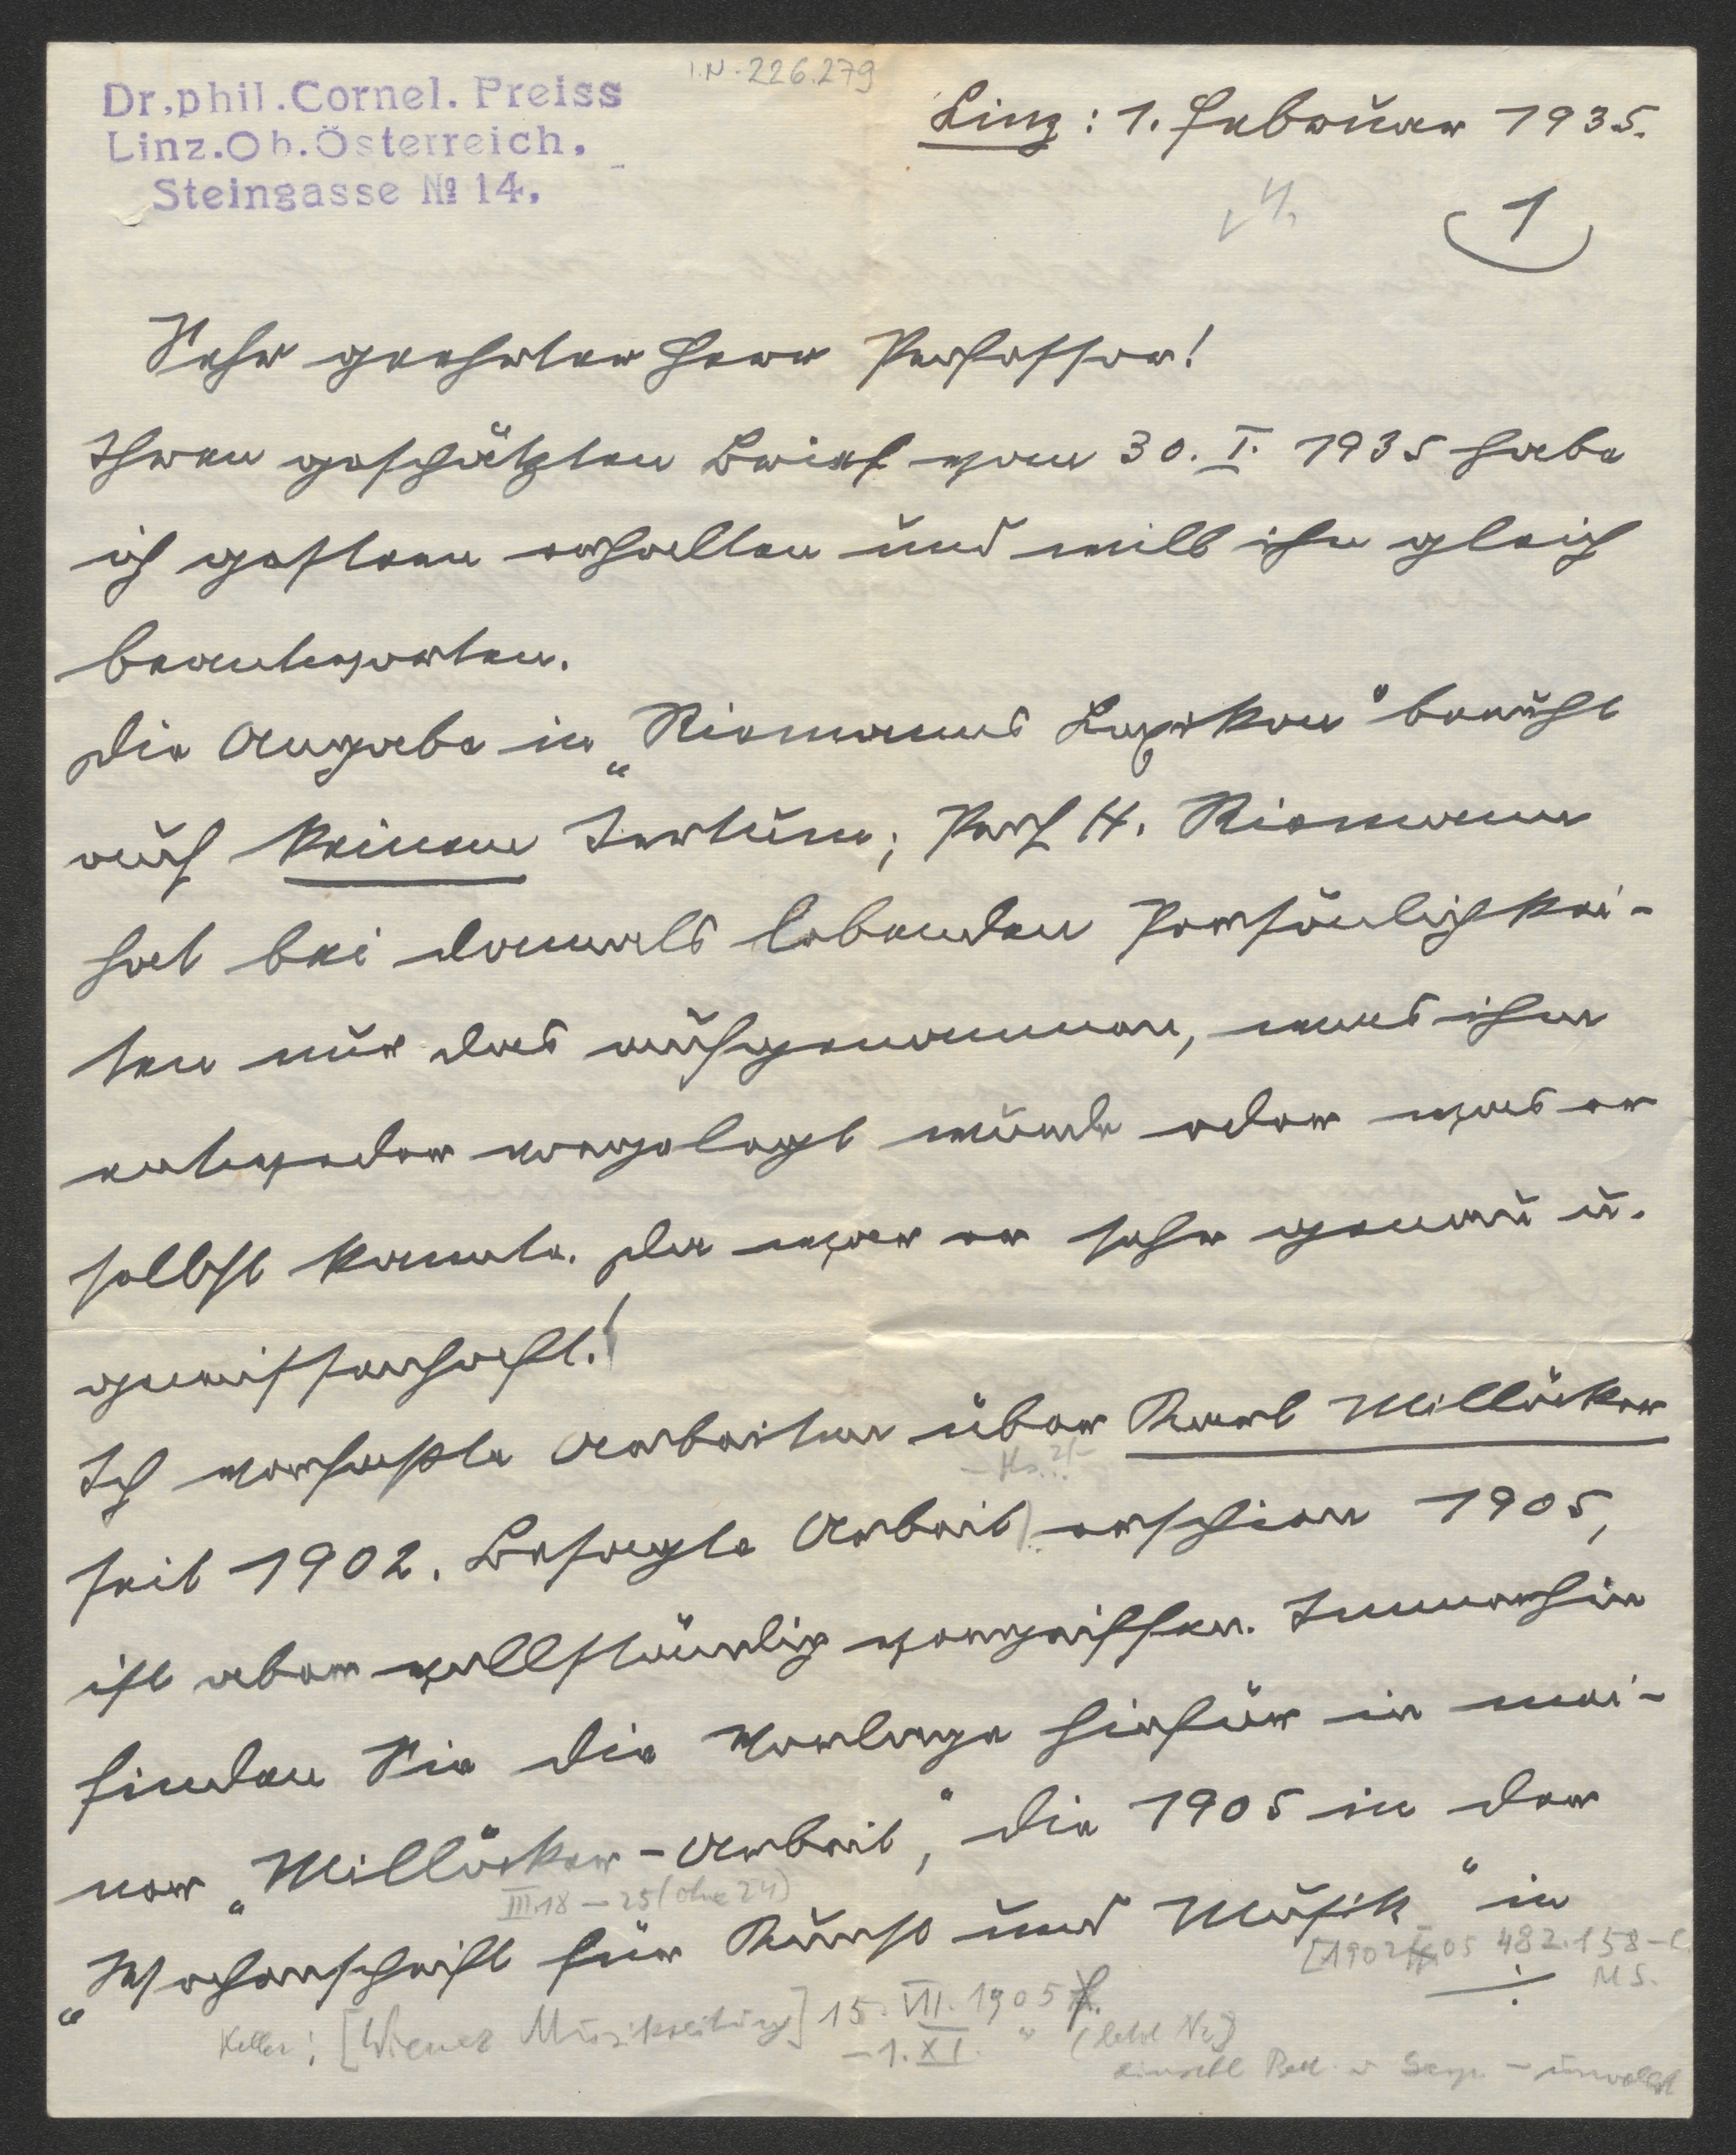 I.N. 226.279
Dr.phil.Cornel. Preiss
Linz.Ob.Österreich.
Steingasse № 14.
Linz: 1. Februar 1935.
1
Sehr geehrter Herr Professor!
Ihren geschätzten Brief vom 30. I. 1935 habe
ich gestern erhalten und will ihn gleich
beantworten.
Die Angabe in „Riemanns Lexikon“ beruht
auf keinem Irrtum; Prof H. Riemann
hat bei damals lebenden Persönlichkei-
ten nur das aufgenommen, was ihm
entweder vorgelegt wurde oder was er
selbst kannte. Da war er sehr genau u.
gewissenhaft!
Ich verfaßte Arbeiten über Karl Millöcker
seit 1902. Besagte Arbeit erschien 1905,
ist aber vollständig vergriffen. Immerhin
finden Sie die Vorlage hiefür in mei-
ner „Millöcker-Arbeit“, die 1905 in der
III.18 – 25 (ohne 24)
„Wochenschrift für Kunst und Musik“ in
482.158-C
M S.
Keller: [Wiener Musikzeitung] 15. VII. 1905
– 1. XI. "